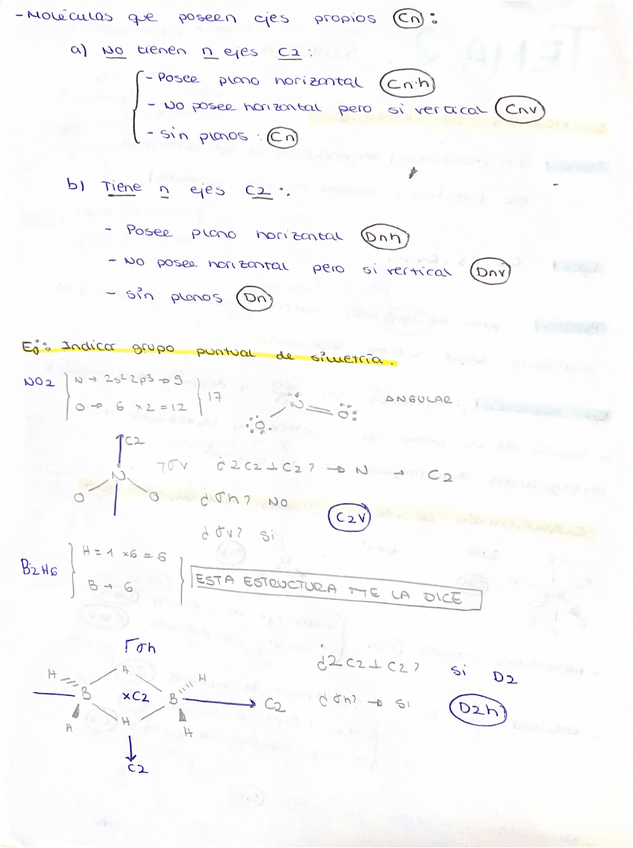 - Moléculas que poseen ejes propios (Cn):
a) No tienen n ejes C2:
- Posee plano horizontal Cnh
- No posee horizontal pero si vertical Cnv
- sin planos: Cn
b) Tiene n ejes C2:
- Posee plano horizontal Dnh
- No posee horizontal pero si vertical Dnv
- sin planos Dn
Ej: Indicar grupo puntual de simetría.
NO2 N → 2s² 2p3 → 5
O → 6 x2 = 12 17
N O O
ANGULAR
C2
N O O
σv ¿2C2 ⊥ C2? → N → C2
¿σh? NO
C2v
¿σv? Si
B2H6 H = 1 x6 = 6
B → 6
ESTA ESTRUCTURA TE LA DICE
σh
H B H B H
xC2
H H H
C2
C2
¿2C2 ⊥ C2? si D2
¿σh? → si D2h